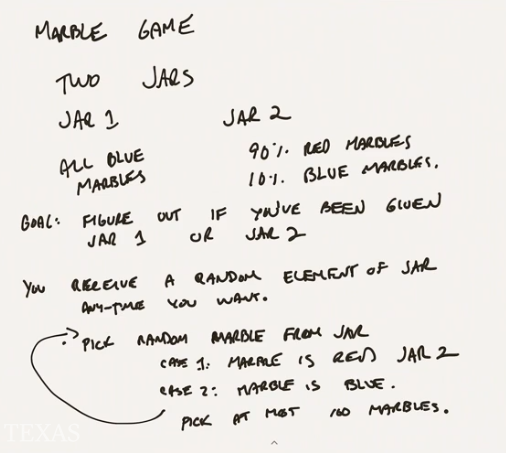 MARBLE GAME
TWO JARS
JAR 1 JAR 2
ALL BLUE MARBLES
90% RED MARBLES
10% BLUE MARBLES.
GOAL: FIGURE OUT IF YOU'VE BEEN GIVEN
JAR 1 OR JAR 2
YOU RECEIVE A RANDOM ELEMENT OF JAR
ANY-TIME YOU WANT.
PICK RANDOM MARBLE FROM JAR
CASE 1: MARBLE IS RED JAR 2
CASE 2: MARBLE IS BLUE.
PICK AT MOST 100 MARBLES.
TEXAS